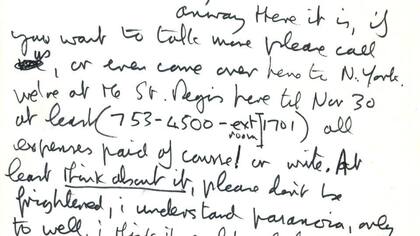 anway Here it is, if
you want to talk more please call
us, or even come over here to N. York.
we're at the St. Regis here til Nov 30
at least (753-4500-ext room 1701) all
expenses paid of course! or write. At
least think about it, please don't be
frightened, i understand paranoia, only
to well, i think it